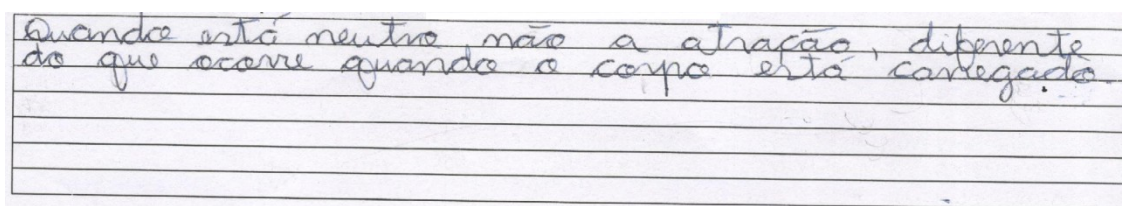 Quando está neutro não a atração, diferente
do que ocorre quando o corpo está carregado.